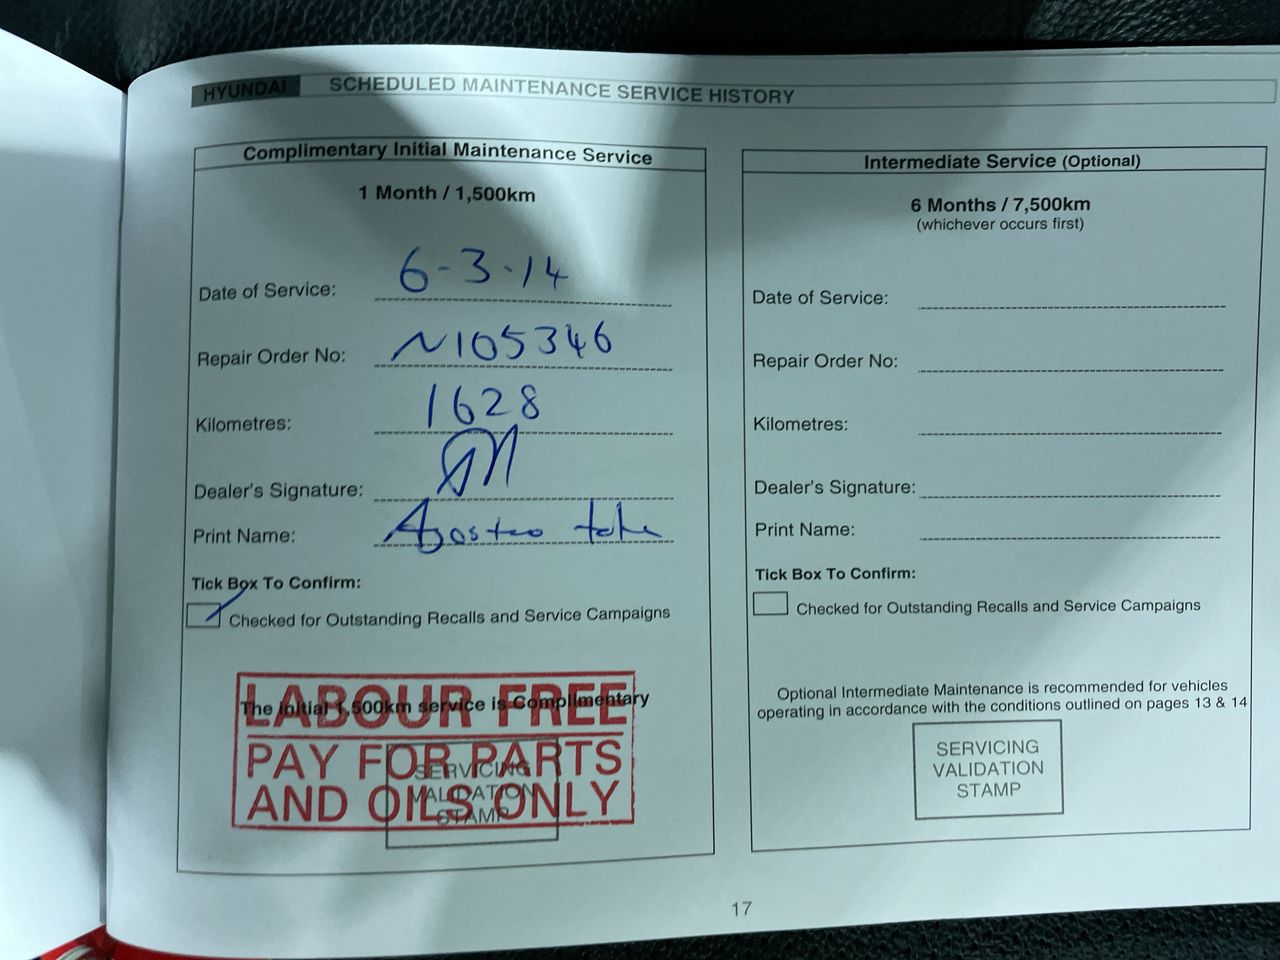 HYUNDAI SCHEDULED MAINTENANCE SERVICE HISTORY
Complimentary Initial Maintenance Service
1 Month / 1,500km
Date of Service: 6-3-14
Repair Order No: N105346
Kilometres: 1628
Dealer's Signature:
Print Name:
Tick Box To Confirm:
Checked for Outstanding Recalls and Service Campaigns
LABOUR FREE
The initial 1,500km service is Complimentary
PAY FOR PARTS
AND OILS ONLY
SERVICING
VALIDATION
STAMP
Intermediate Service (Optional)
6 Months / 7,500km
(whichever occurs first)
Date of Service:
Repair Order No:
Kilometres:
Dealer's Signature:
Print Name:
Tick Box To Confirm:
Checked for Outstanding Recalls and Service Campaigns
Optional Intermediate Maintenance is recommended for vehicles
operating in accordance with the conditions outlined on pages 13 & 14
SERVICING
VALIDATION
STAMP
17